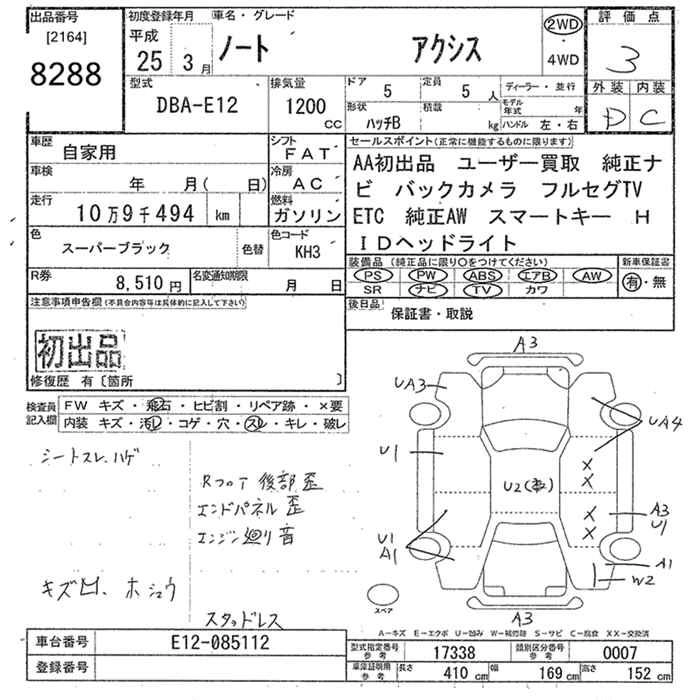 出品番号
[2164]
8288
初度登録年月
平成
25 3月
車名・グレード
ノート アクシス
2WD
4WD
評価点
3
外装 内装
D C
型式
DBA-E12
排気量
1200
CC
ドア
5
定員
5 人
形状
ハッチB
積載
kg
ディーラー・並行
モデル年式
年
ハンドル 左・右
車歴
自家用
シフト
FAT
車検
年 月( 日)
冷房
AC
走行
10万9千494 km
燃料
ガソリン
色
スーパーブラック
色替
色コード
KH3
R券
8,510円
名変通知期限
月 日
セールスポイント(正常に機能するものに限ります)
AA初出品 ユーザー買取 純正ナ
ビ バックカメラ フルセグTV
ETC 純正AW スマートキー H
IDヘッドライト
装備品(純正品に限り○をつけてください)
PS PW ABS エアB AW
SR ナビ TV カワ
新車保証書
有・無
後日品
保証書・取説
注意事項申告欄(不具合内容等は具体的に記入して下さい)
初出品
修復歴 有〔箇所 〕
検査員
記入欄
FW キズ・飛石・ヒビ割・リペア跡・×要
内装 キズ・汚レ・コゲ・穴・スレ・キレ・破レ
シートスレ.ハゲ
RフロT 後部歪
エンドパネル 歪
エンジン廻り音
キズ凹. ホシュウ
スタッドレス
A3
UA3
UA4
U1
U2
×
×
×
×
A3
U1
U1
A1
A1
W2
A3
スペア
A-キズ E-エクボ U-凹み W-補修跡 S-サビ C-腐食 XX-交換済
車台番号
E12-085112
登録番号
型式指定番号
参考
17338
類別区分番号
参考
0007
車庫証明用
参考
長さ
410 cm
幅
169 cm
高さ
152 cm